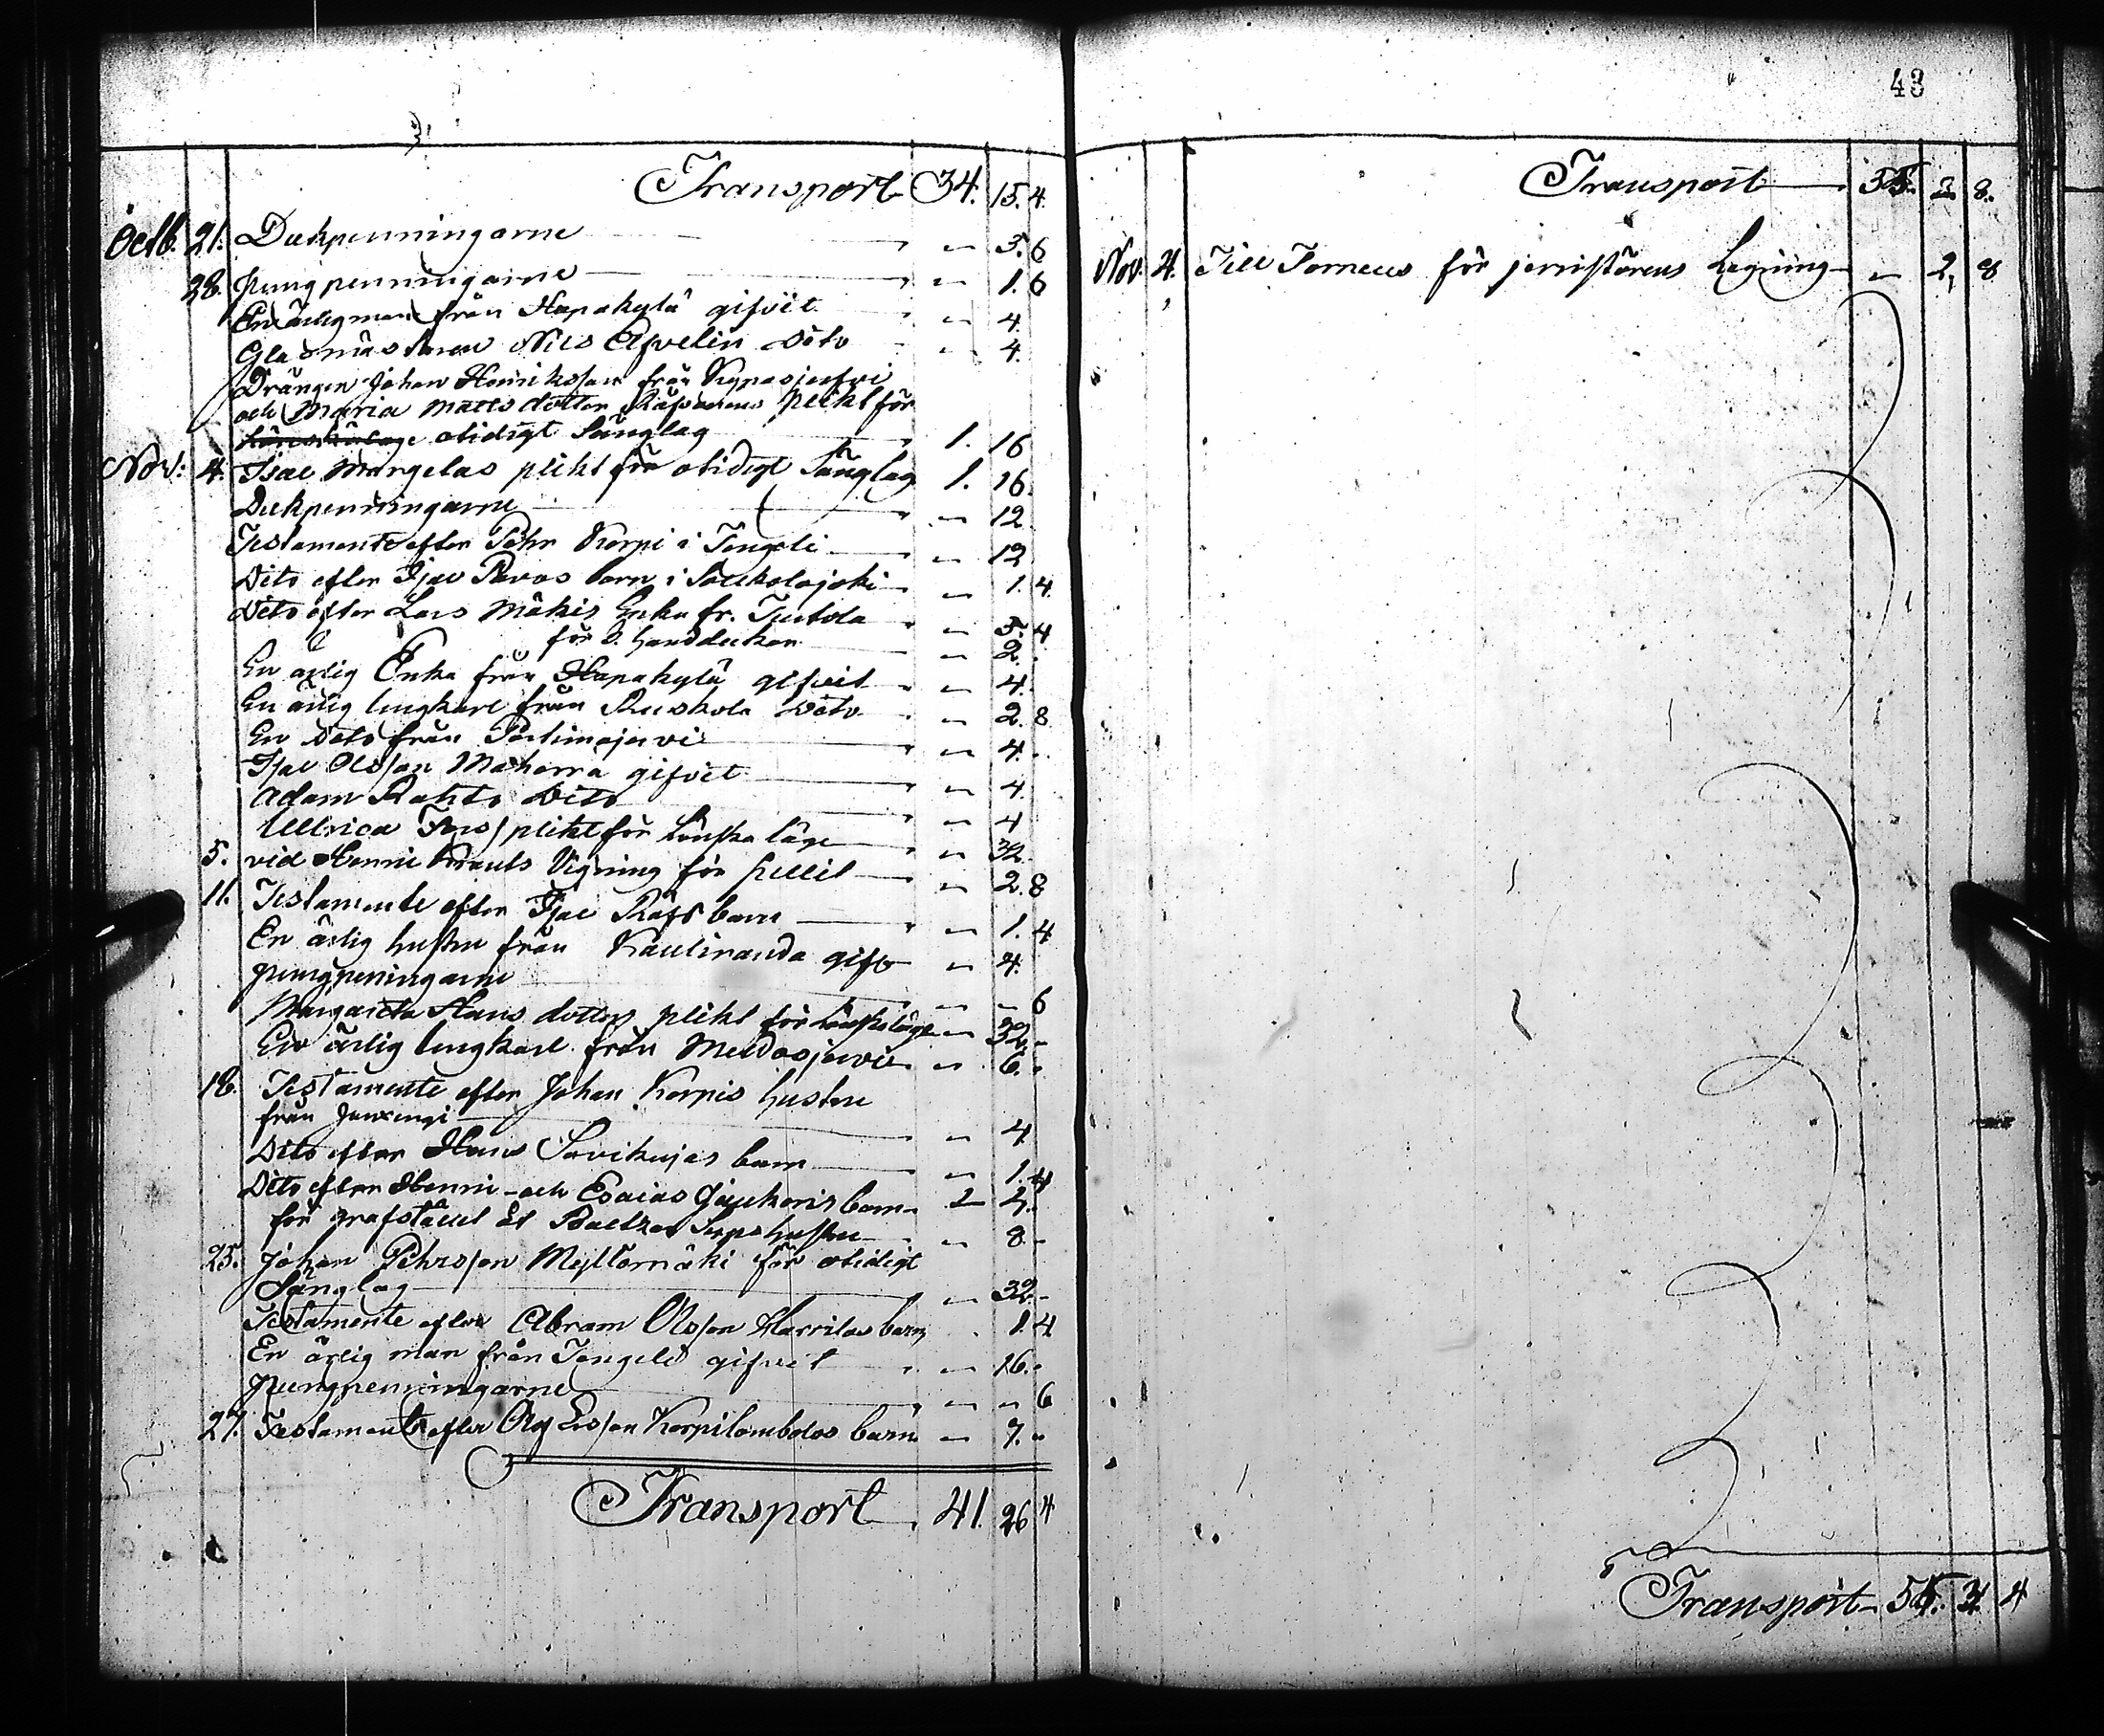 43
Transport 34. 15. 4.
Octb. 21. Duekpenningarne " 5. 6
28. pungpenningarne " 1. 6
En ärlig man från Hapakylä gifvit " 4.
Glasmästaren Nils Afvelin dito " 4.
Drängen Johan Henriksson från
och Maria Matts dotter plikt för
otidigt Sänglag 1. 16
Nov: 4. Isac Margelas plikt för otidigt Sänglag 1. 16.
Duekpenningarne " 12
Testamente efter Pehr Korpi i Tengeli " 12
Dito efter Isac barn i " 1. 4.
Dito efter Lars Mäkis Enka fr. Turtola " 5. 4
för S. handduken " 2.
En ärlig Enka från Hapakylä gifvit " 4.
En ärlig ungkarl från Ruskola dito " 2. 8
En dito från Portimojervi " 4.
Isac Olsson gifvit " 4.
Adam Rahto dito " 4
Ullrica plikt för Lönska läge " 32.
5. vid Henric Vigning för pellit " 2. 8
11. Testamente efter Isac Räfs barn " 1. 4
En ärlig hustru från Kauliranda gifv " 4.
pungpeningarne " " 6
Margareta Hans dotters plikt för Lönskaläge " 32. -
En ärlig ungkarl från Meldosjervi " 6.
18. Testamente efter Johan Korpis hustru
från Juoxengi " 4
Dito efter Hans Savikujas barn " 1. 4
Dito efter Henric och Esaias barn 2.
för grafstället åt hustru " 8 -
25. Johan Pehrsson för otidigt
Sänglag " 32. -
Testamente efter Abram Olsson barn 1. 4
En ärlig man från Tengeli gifvit " 16.
Pungpenningarne " " 6
27. Testamente efter Olof Ersson Korpilombolos barn " 7. "
Transport 41. 26 4
Transport 2. 8.
Nov. 4. Till Torneus för Lagning " 2, 8
Transport 4